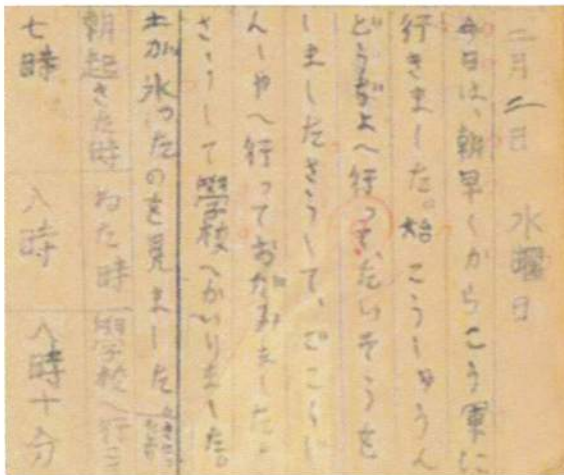 二月二日 水曜日
今日は、朝早くからこう軍に
行きました。始 こうしゆうん
どうぢよへ行って、たいそうを
しましたさうして、ごこくじ
んしやへ行っておがみました。
さうして學校へかいりました。
土が氷ったのを見ました
朝起きた時 ねた時 學校へ行
七時 八時 八時十分